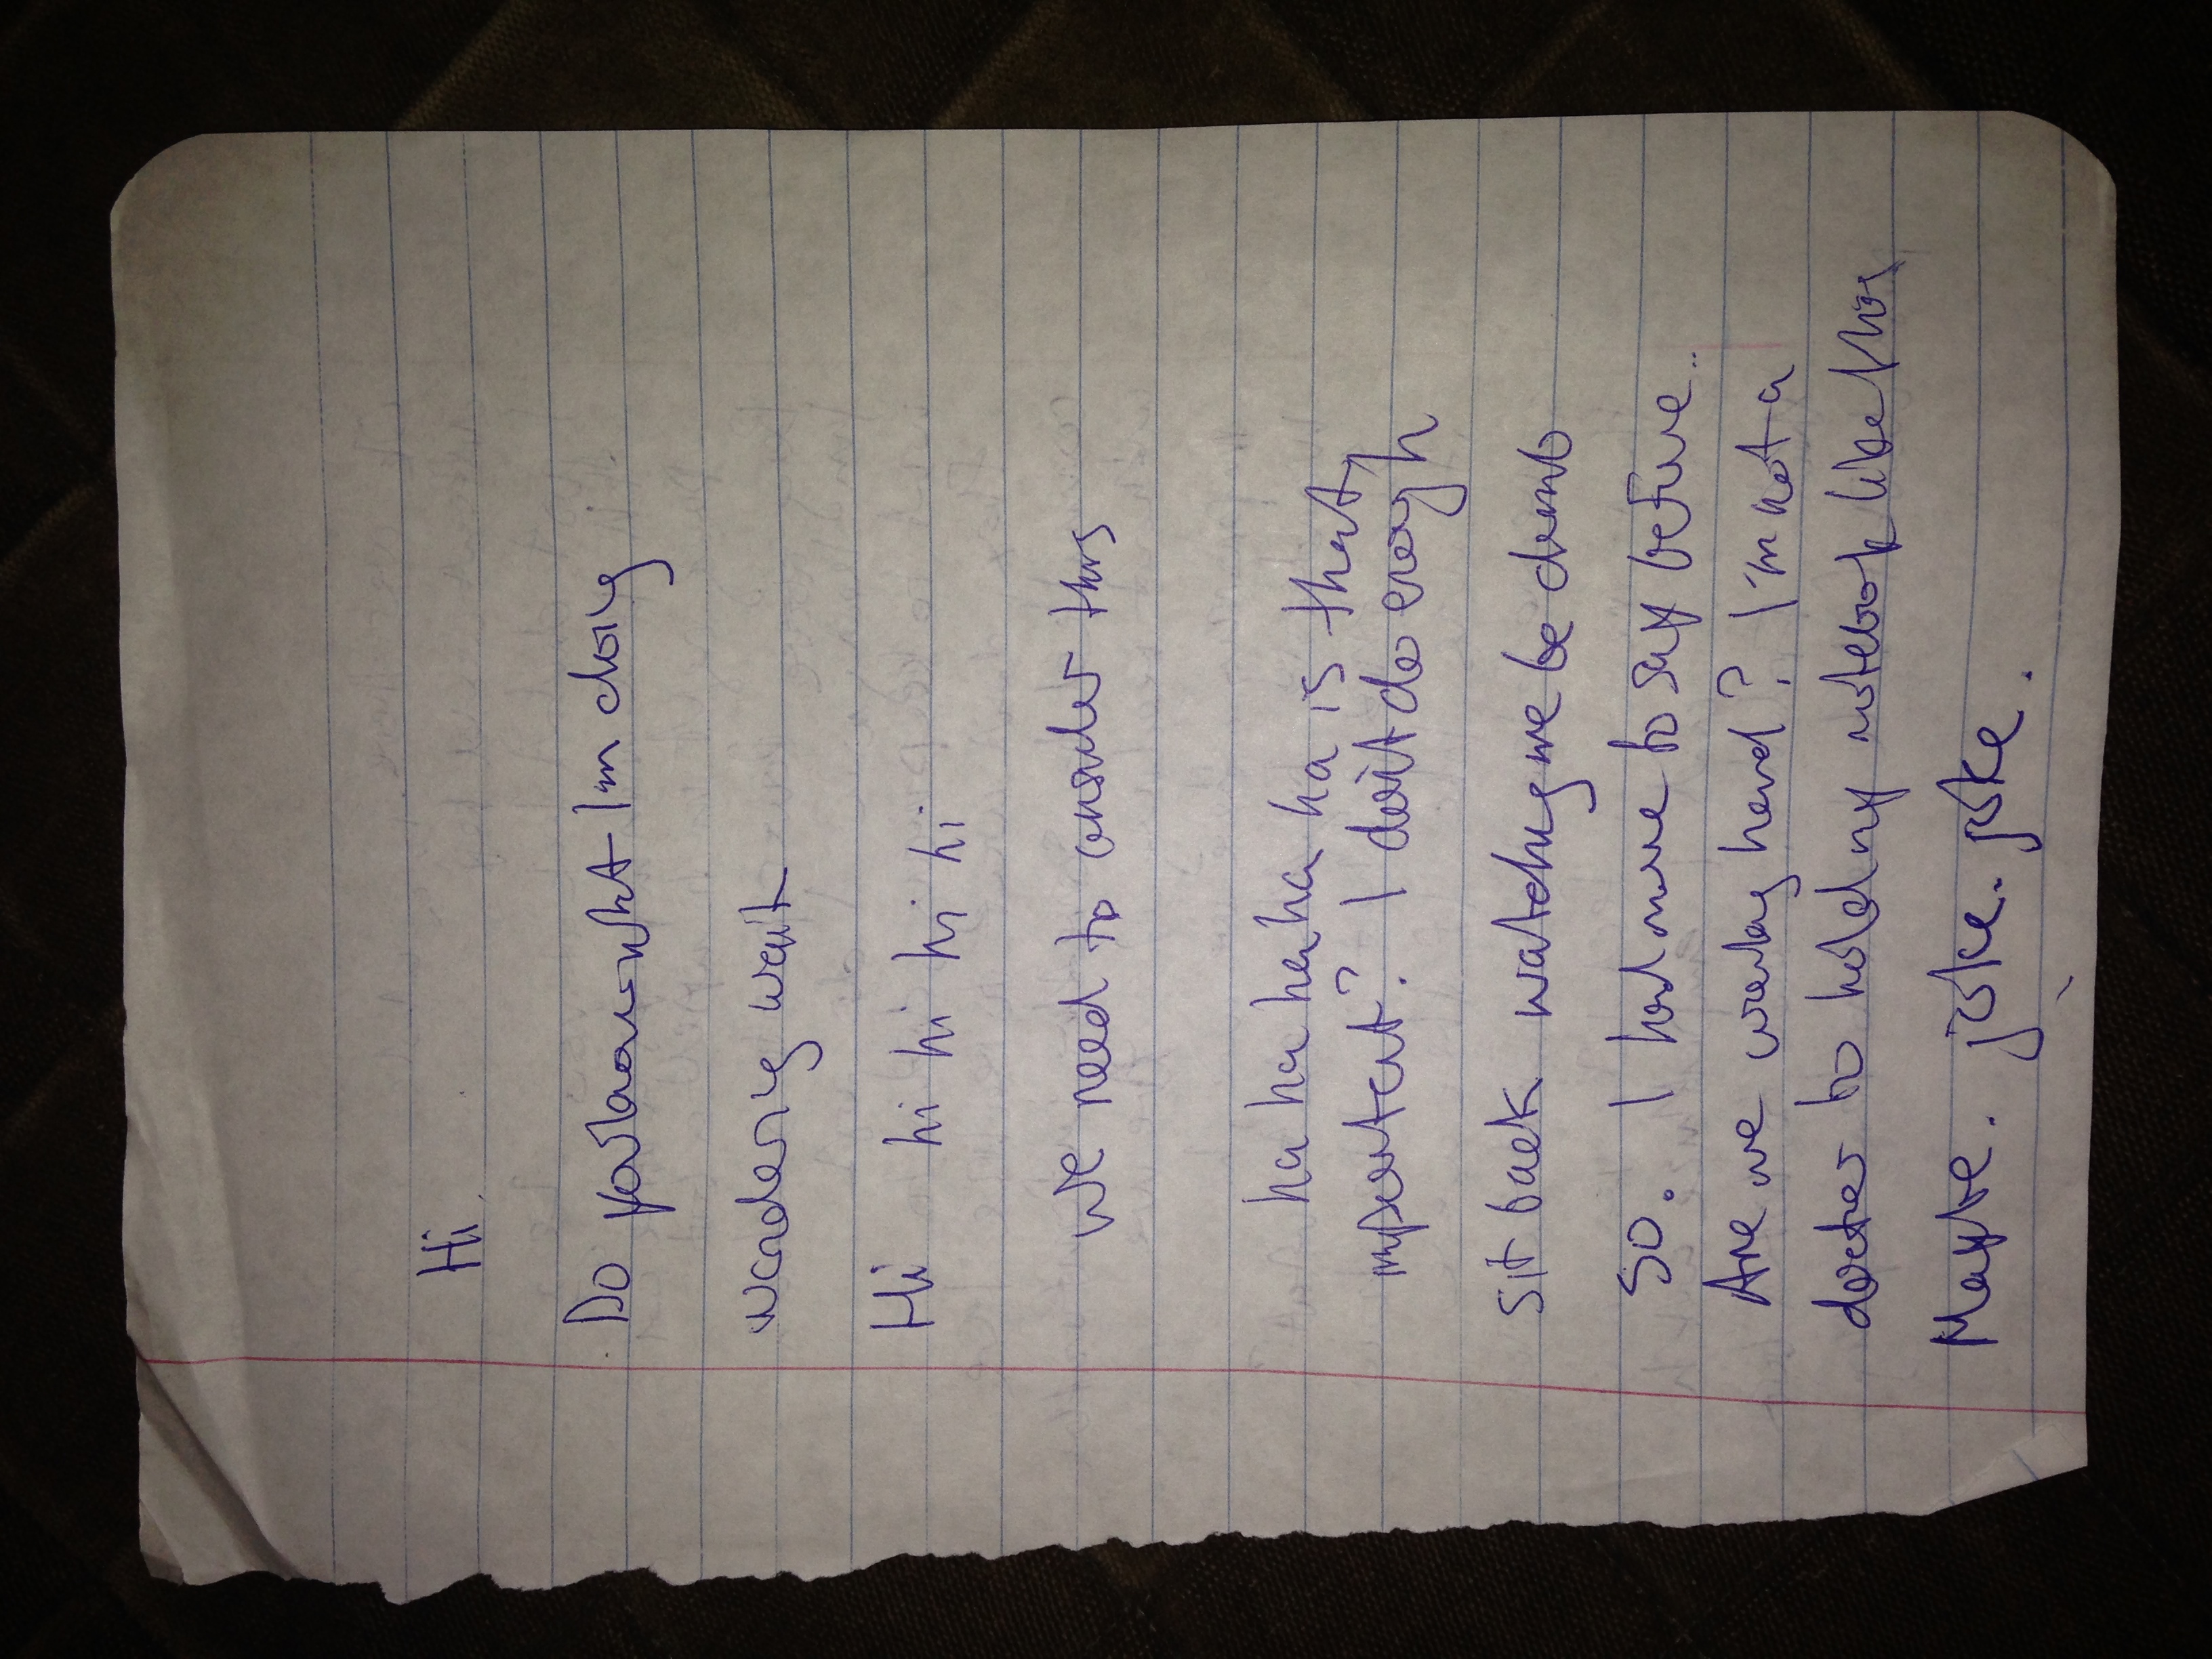 Hi.
Do you know what I'm doing
wandering wait
Hi hi hi hi hi hi
we need to consider this
ha ha ha ha ha is that
important? I don't do enough
Sit back watching me be dumb
So. I had more to say before...
Are we working hard? I'm not a
doctor to holding notebook like this
Maybe. joke. joke.